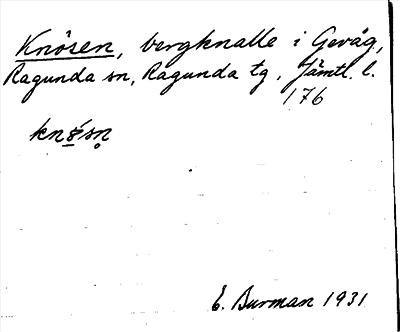 Knösen, bergknalle i Gevåg,
Ragunda sn, Ragunda tg, Jämtl. l.
176
knö́sn̥
E. Burman 1931